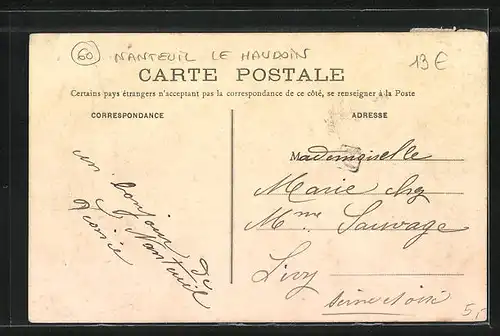 60 NANTEUIL LE HAUDOIN
13€
CARTE POSTALE
Certains pays étrangers n'acceptant pas la correspondance de ce côté, se renseigner à la Poste
CORRESPONDANCE
un bonjour de
Nanteuil
ADRESSE
Mademoiselle
Marie chez
Mme Sauvage
Livry
Seine et Oise
5,-